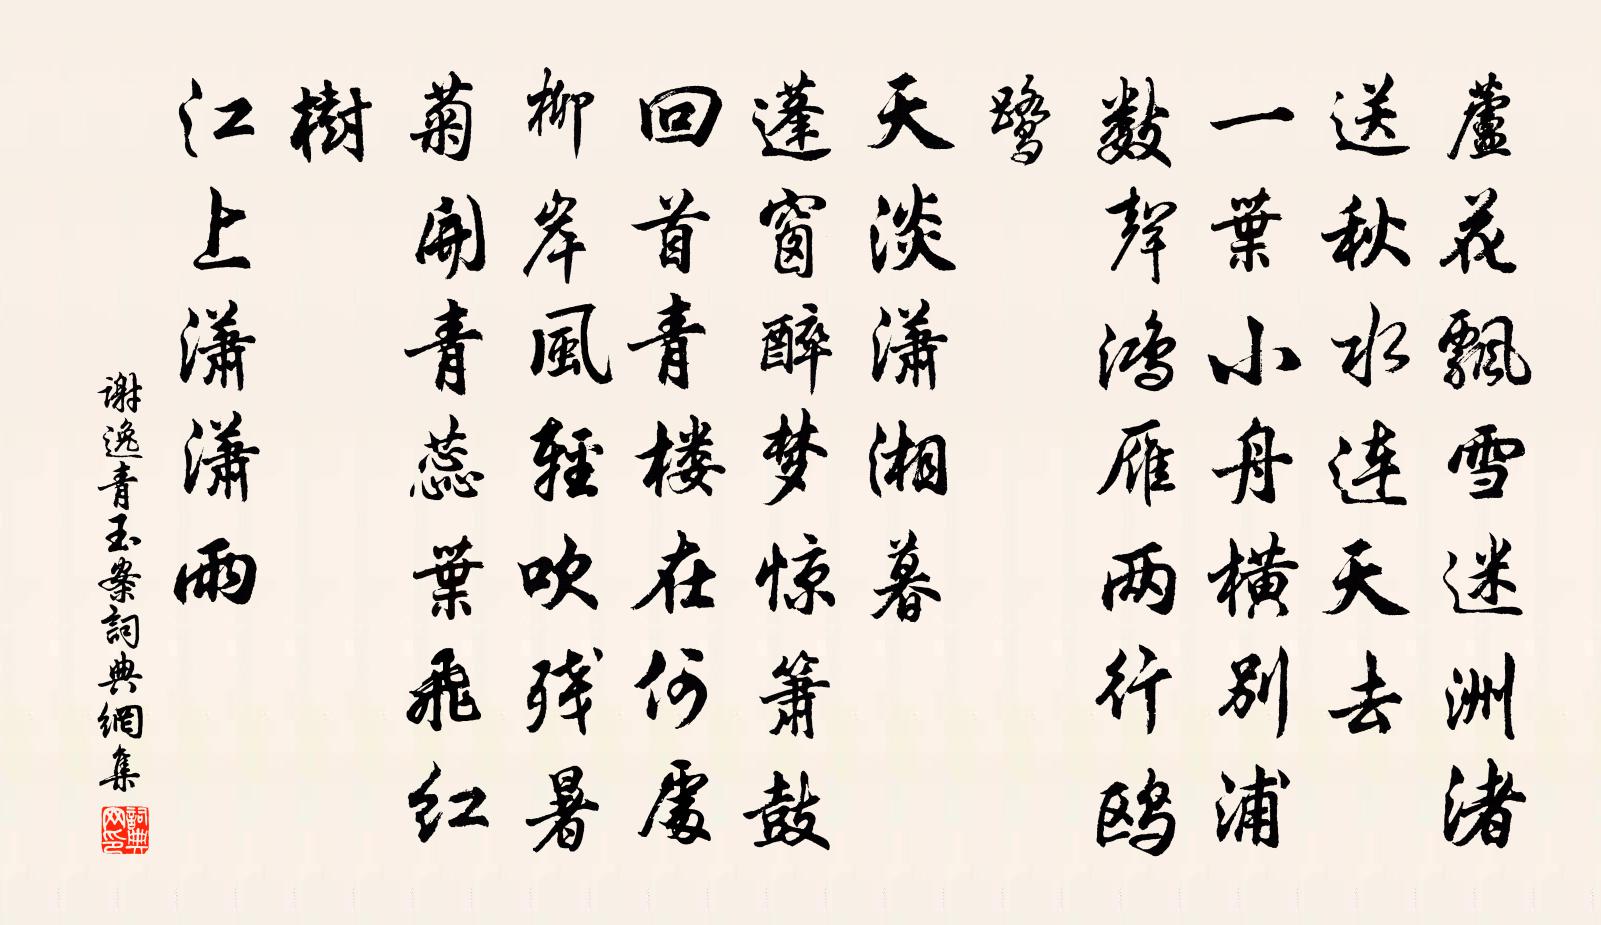 蘆花飄雪迷洲渚
送秋水连天去
一葉小舟橫别浦
數聲鴻雁两行鸥
鷺
天淡潇湘暮
蓬窗醉梦惊箫鼓
回首青楼在何處
柳岸風輕吹残暑
菊開青蕊葉飛红
樹
江上潇潇雨
谢逸青玉案詞典網集
詞典网印